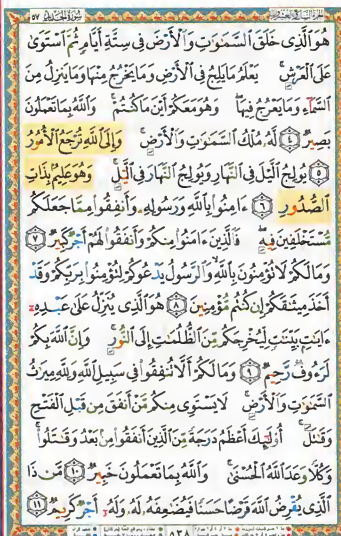 سورة الحديد ٥٧
هُوَ ٱلَّذِى خَلَقَ ٱلسَّمَٰوَٰتِ وَٱلْأَرْضَ فِى سِتَّةِ أَيَّامٍ ثُمَّ ٱسْتَوَىٰ
عَلَى ٱلْعَرْشِ ۚ يَعْلَمُ مَا يَلِجُ فِى ٱلْأَرْضِ وَمَا يَخْرُجُ مِنْهَا وَمَا يَنزِلُ مِنَ
ٱلسَّمَآءِ وَمَا يَعْرُجُ فِيهَا ۖ وَهُوَ مَعَكُمْ أَيْنَ مَا كُنتُمْ ۚ وَٱللَّهُ بِمَا تَعْمَلُونَ
بَصِيرٌ ٤ لَّهُۥ مُلْكُ ٱلسَّمَٰوَٰتِ وَٱلْأَرْضِ ۚ وَإِلَى ٱللَّهِ تُرْجَعُ ٱلْأُمُورُ
٥ يُولِجُ ٱلَّيْلَ فِى ٱلنَّهَارِ وَيُولِجُ ٱلنَّهَارَ فِى ٱلَّيْلِ ۚ وَهُوَ عَلِيمٌۢ بِذَاتِ
ٱلصُّدُورِ ٦ ءَامِنُوا۟ بِٱللَّهِ وَرَسُولِهِۦ وَأَنفِقُوا۟ مِمَّا جَعَلَكُم
مُّسْتَخْلَفِينَ فِيهِ ۖ فَٱلَّذِينَ ءَامَنُوا۟ مِنكُمْ وَأَنفَقُوا۟ لَهُمْ أَجْرٌ كَبِيرٌ ٧
وَمَا لَكُمْ لَا تُؤْمِنُونَ بِٱللَّهِ ۙ وَٱلرَّسُولُ يَدْعُوكُمْ لِتُؤْمِنُوا۟ بِرَبِّكُمْ وَقَدْ
أَخَذَ مِيثَٰقَكُمْ إِن كُنتُم مُّؤْمِنِينَ ٨ هُوَ ٱلَّذِى يُنَزِّلُ عَلَىٰ عَبْدِهِۦٓ
ءَايَٰتٍۭ بَيِّنَٰتٍ لِّيُخْرِجَكُم مِّنَ ٱلظُّلُمَٰتِ إِلَى ٱلنُّورِ ۚ وَإِنَّ ٱللَّهَ بِكُمْ
لَرَءُوفٌ رَّحِيمٌ ٩ وَمَا لَكُمْ أَلَّا تُنفِقُوا۟ فِى سَبِيلِ ٱللَّهِ وَلِلَّهِ مِيرَٰثُ
ٱلسَّمَٰوَٰتِ وَٱلْأَرْضِ ۚ لَا يَسْتَوِى مِنكُم مَّنْ أَنفَقَ مِن قَبْلِ ٱلْفَتْحِ
وَقَٰتَلَ ۚ أُو۟لَٰٓئِكَ أَعْظَمُ دَرَجَةً مِّنَ ٱلَّذِينَ أَنفَقُوا۟ مِنۢ بَعْدُ وَقَٰتَلُوا۟ ۚ
وَكُلًّا وَعَدَ ٱللَّهُ ٱلْحُسْنَىٰ ۚ وَٱللَّهُ بِمَا تَعْمَلُونَ خَبِيرٌ ١٠ مَّن ذَا
ٱلَّذِى يُقْرِضُ ٱللَّهَ قَرْضًا حَسَنًا فَيُضَٰعِفَهُۥ لَهُۥ وَلَهُۥٓ أَجْرٌ كَرِيمٌ ١١
٥٣٨